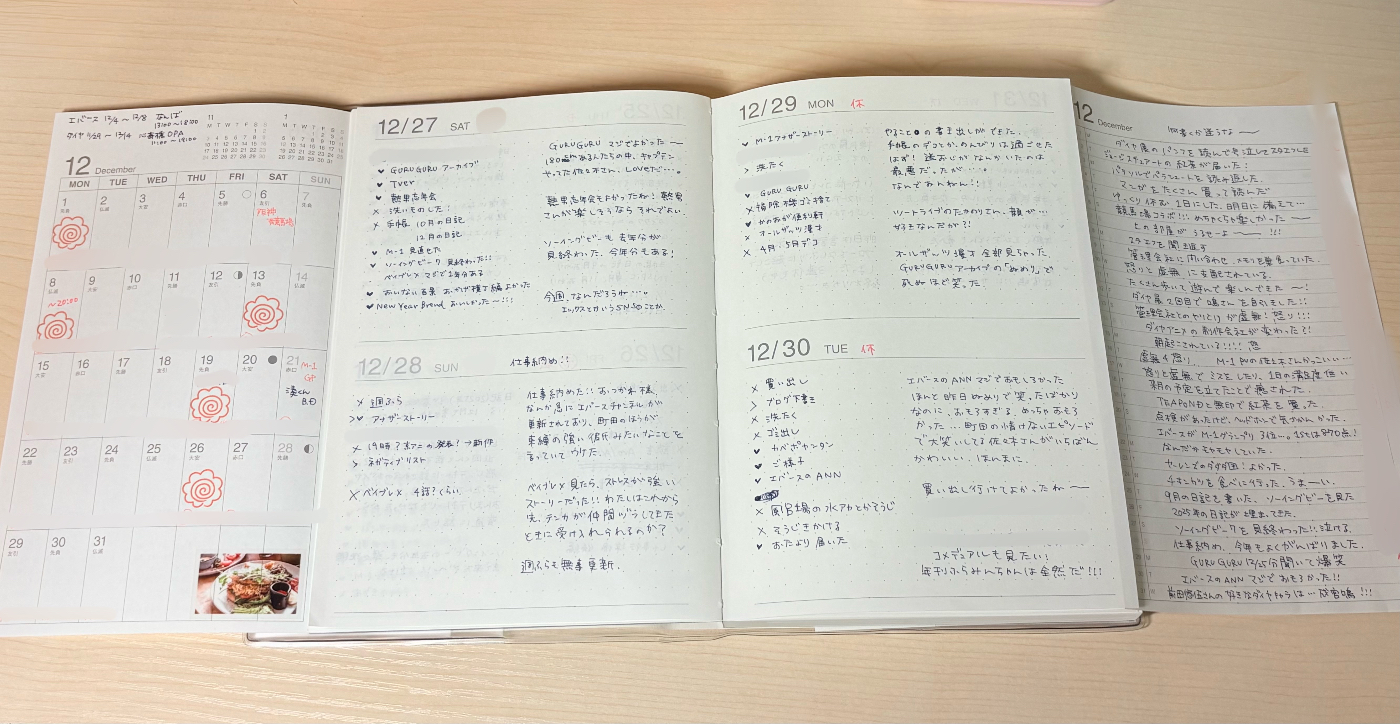 エバース 12/4 〜 12/8 なんば
13:00〜18:00
ダイヤ 11/29 〜 12/14 心斎橋 OPA
11:00〜19:00
11
M T W T F S S
1
M T W T F S S
12 December
MON TUE WED THU FRI SAT SUN
1 2 3 4 5 6 7
先負 仏滅 大安 赤口 先勝 友引 先負
阪神
競馬場
8 9 10 11 12 13 14
仏滅 大安 赤口 先勝 友引 先負 仏滅
〜20:00
15 16 17 18 19 20 21
大安 赤口 先勝 友引 先負 仏滅 赤口
M-1
GP
湊くん
B.D
22 23 24 25 26 27 28
先勝 友引 先負 仏滅 大安 赤口 先勝
29 30 31
友引 先負 仏滅
12/27 SAT
GURUGURU アーカイブ
Tver
熱闘高年会
洗いものした!
手帳 10月の日記
12月の日記
M-1 見直せた
ソーイングビー 見終わった!!
ベイブレX マジで1年分ある
おいない音楽 おかず横丁編よかった
New Year Blend おいしかった〜!!!
GURUGURU マジでよかった〜
やってた佐々木さん、LOVEだ…。
熱闘高年会もよかったね!
さんが楽しそうなら それでよい。
ソーイングビーも去年分が
見終わった、今年分もある!
今週、なんだろうね…。
エックスとかいうSNSのことか
12/28 SUN
仕事納め!!
週ふら
アナザーストーリー
19時?
ネガティブリスト
ベイブレX 4話?くらい
仕事納めた!! おつかれ様、
なんか急にエバースチャンネルが
更新されており、町田のほうが
言っていて ウケた。
ベイブレX 見たら、ストレスが強い
ストーリーだった!! わたしはこれから
先、テンカが仲間ヅラしてきた
ときに受け入れられるのか?
週ふらも無事更新.
12/29 MON 休
M-1アナザーストーリー
洗たく
GURU GURU
掃除機ゴミ捨て
かのおが便利軒
オールザッツ漫才
4月・5月デコ
やることの書き出しができた。
手帳のデコとか、のんびりは過ごせた
はず! 途おじがなんかいたのは
最悪だったが…。
なんでおんねん!!
ツートライブのたかのりさん、顔が…
好きなんだが?!
オールザッツ漫才 全部見ちゃった。
GURUGURU アーカイブの「ぬめり」で
死ぬほど笑った。
12/30 TUE 休
買い出し
ブログ下書き
洗たく
ゴミ出し
カベポカンタン
ご様子
エバースのANN
風呂場の水アカとかそうじ
そうじきかける
おたより届いた
エバースのANN マジでおもしろかった
ほんと昨日ぬめりで 笑ったばかり
なのに、おもろすぎる、めっちゃおもろ
かった… 町田の情けないエピソード
で大笑いしてる佐々木さんがいちばん
かわいい。ほんまに。
買い出し行けてよかったね〜
コメデュアルも見たい!
年刊ふらみんちゃんは全然だ!!!
12 December
ダイヤ展のパンフを読んで号泣してスタエフした
ジョージスチュアートの紅茶が届いた!
パラソルでパラシュートを読み返した。
マンガをたくさん買って読んだ
ゆっくり休む1日にした、明日に備えて…
競馬場コラボ!!! めちゃくちゃ楽しかった〜
上の部屋がうるせーよ〜!!!
スタエフを聞き返す
管理会社に問い合わせ、メモを書いていた.
怒りと虚無に支配されている.
たくさん歩いて遊んで楽しんできた〜!
ダイヤ展2回目で鳴さんを自引きした!!
管理会社とのやりとりが虚無! 怒り!!!
ダイヤアニメの制作会社が変わった?!
朝起こされている!!!! 怒
虚無4怒り、 M-1 PVの佐々木さんかっこいい…
怒りと虚無でミスをしたり、1日の満足度低い
来月の予定を立てたことで癒された.
TEAPONDと無印で紅茶を買った.
点検があったけど、ヘッドホンで気づかんかった.
エバースがM-1グランプリ3位…。1stは870点!
なんだかモヤモヤしていた.
ヤーレンズのダダ団! よかった.
チキンカツを食べに行った、うまーい.
9月の日記を書いた、ソーイングビーを見た
2025年の日記が埋まってきた.
ソーイングビーを見終わった!! 泣ける.
仕事納め、今年もよくがんばりました.
GURUGURU 12/25分聞いて爆笑
エバースのANN マジでおもろかった!!
前田悠伍さんの好きなダイヤキャラは…成宮鳴!!!